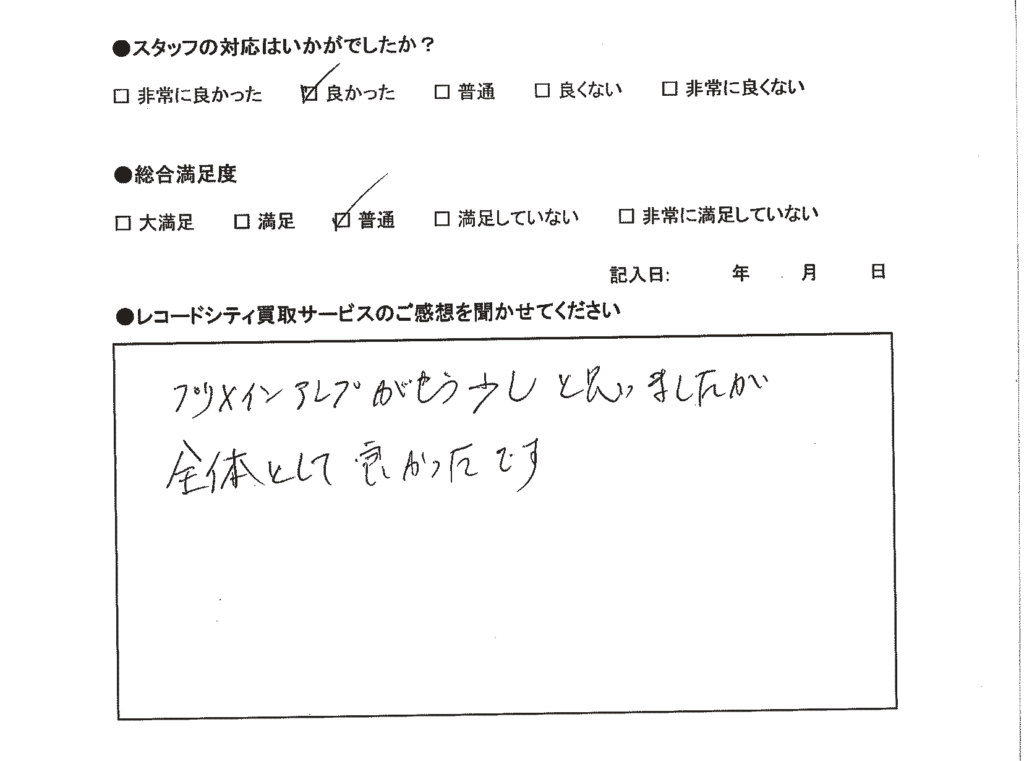 ●スタッフの対応はいかがでしたか？
□ 非常に良かった ☑ 良かった □ 普通 □ 良くない □ 非常に良くない
●総合満足度
□ 大満足 □ 満足 ☑ 普通 □ 満足していない □ 非常に満足していない
記入日: 年 月 日
●レコードシティ買取サービスのご感想を聞かせてください
プリメインアンプがもう少しと思いましたが
全体として良かったです